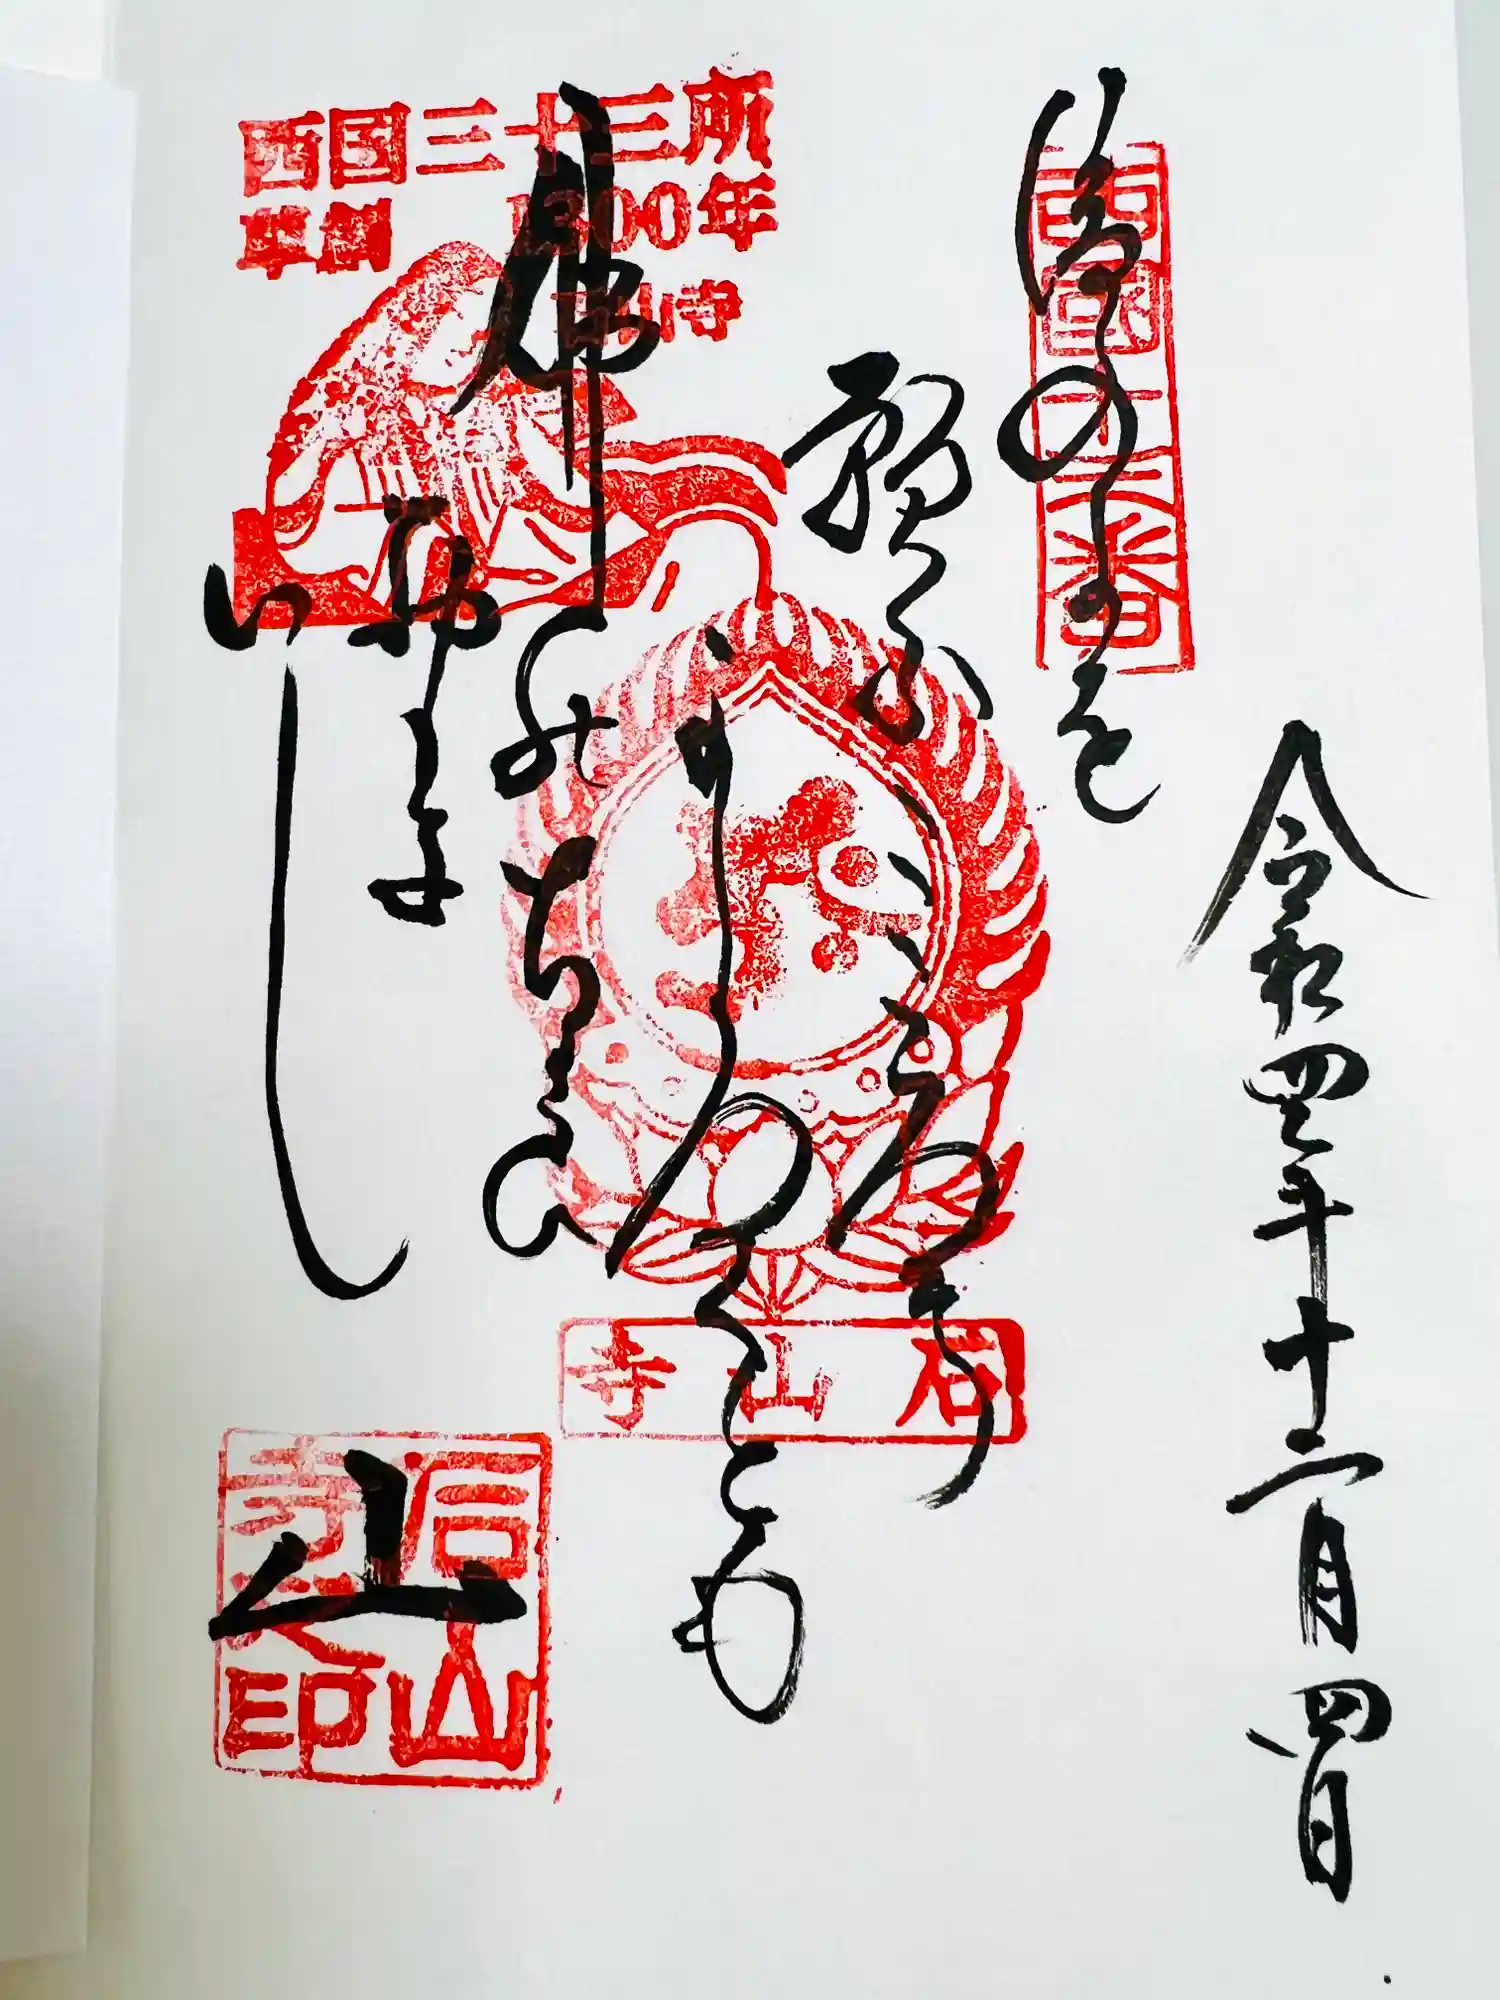 令和四年十二月四日
西國十三番
後のよを
願ふこゝろは
かろくとも
佛のちかひ
おもき
いし
山
西国三十三所
草創 1300年
石山寺
石山寺
石山
寺之印